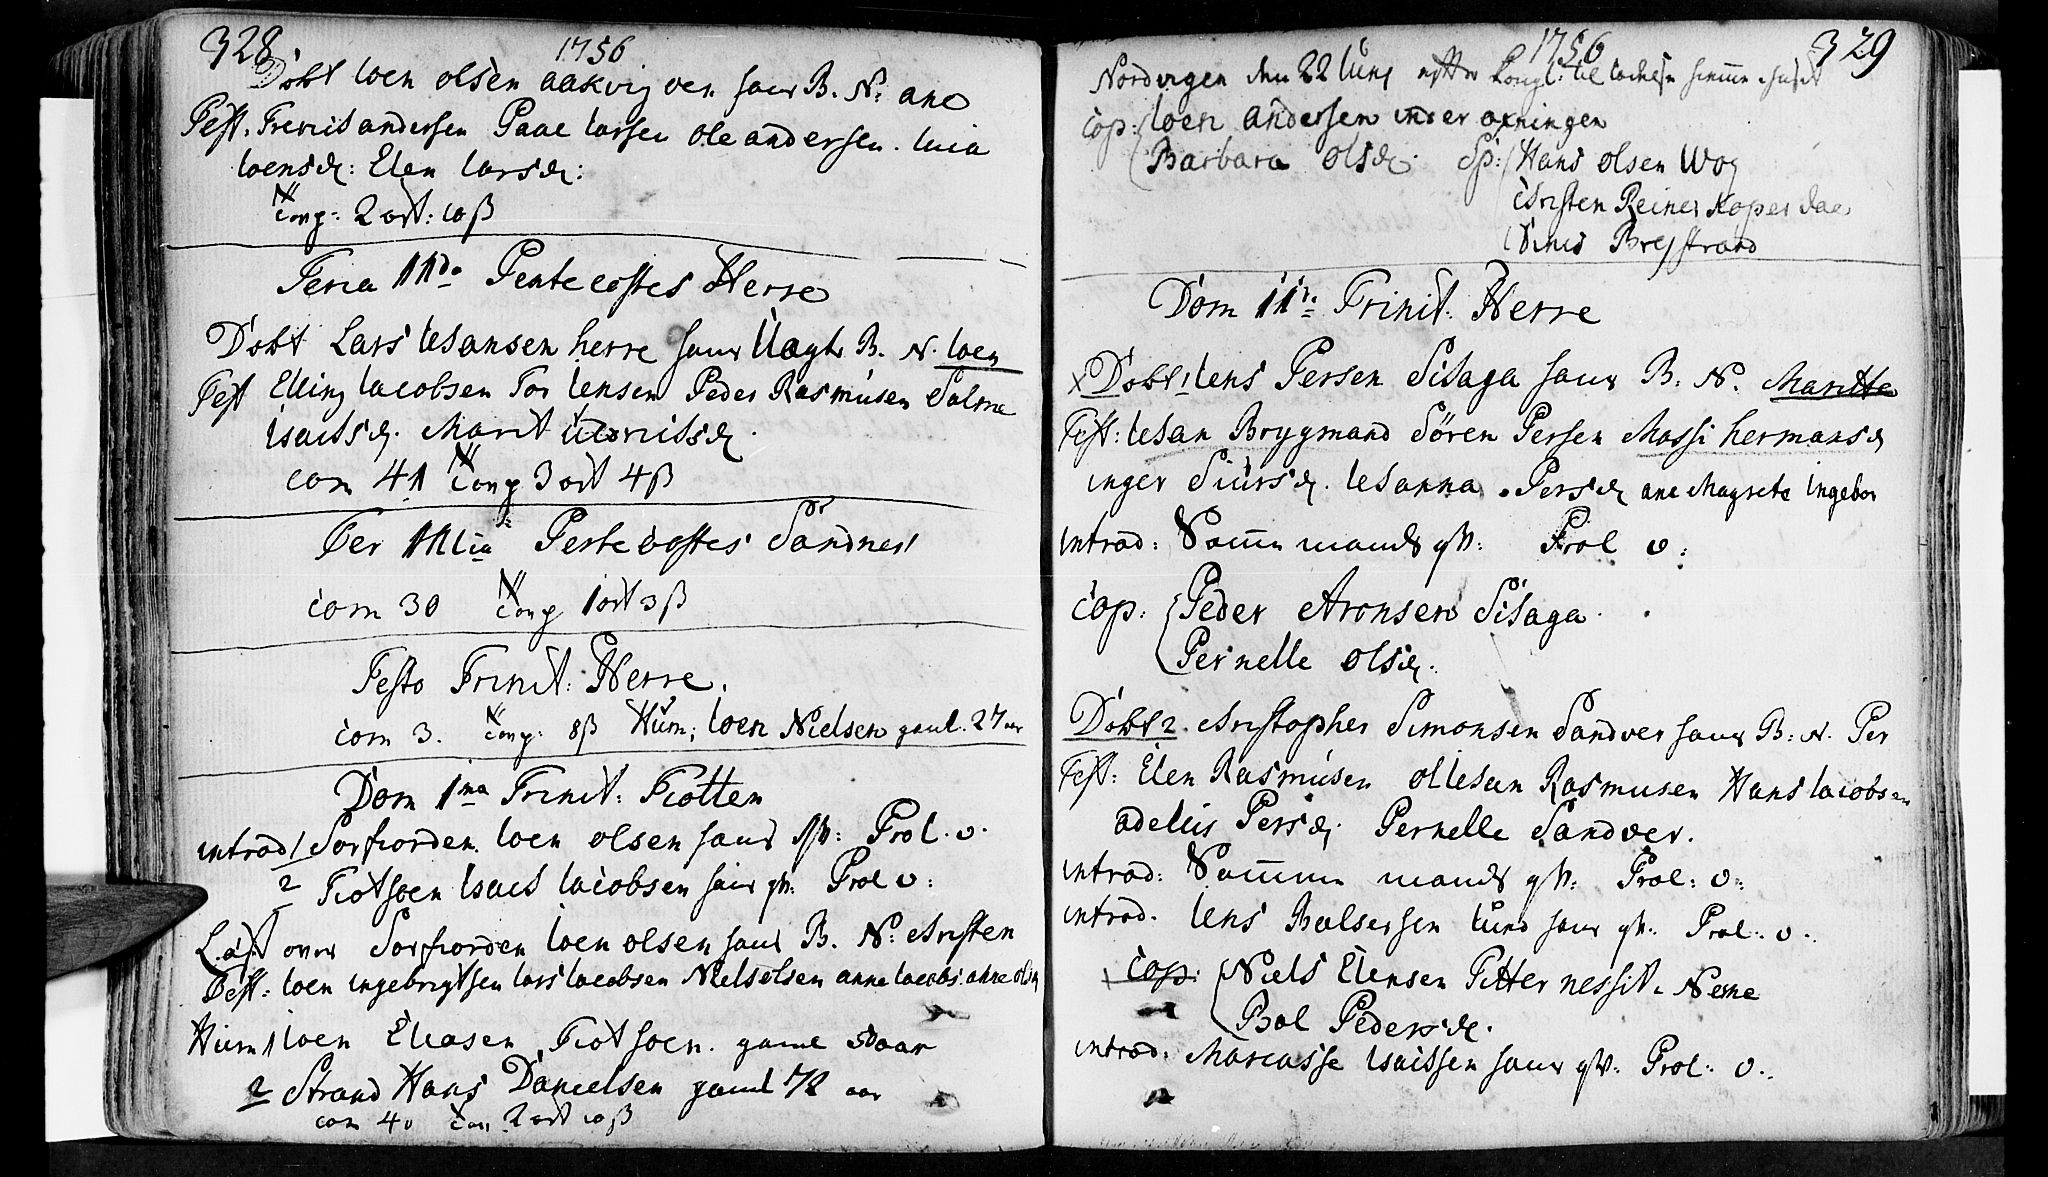 328 1756
Döbt Ioen olsen aakvig oen hans B. N: ane
Test. Trevits andersen Paae Larsen ole andersen. Lucia
Ioensd: Elen Larsd:
cong: 2 ort: 10 ß
Feria 11da Pentecostes Herre
Döbt Lars Iohansen herre hans Uægte B. N. Ioen
Test Elling Iacobsen Tor Iensen Peder Rasmusen Salme
Isaksd. Marit
com 41 Cong 3 ort 4 ß
Fer 111tia Pentecostes Sandnes
com 30 Cong 1 ort 3 ß
Festo Trinit: Herre.
com 3. Cong: 8 ß Hum: Ioen Nielsen gaml. 27 aar
Dom 1ma Trinit: Tiotten
introd 1 Sorfiorden Ioen olsen hans qv: Prol. v.
2 Tiotsoen Isach Iacobsen hans qv: Prol v:
Læst over Sorfiorden Ioen olsen hans B. N: christen
Test: Ioen ingebrigtsen Lars Iacobsen Niels olsen anne Iacobs: ahne olsd
Hum 1 Ioen Eliasen Tiotsoen. gaml 50 aar
2 Strand Hans Danielsen gaml 72 aar
com 40 Con 2 ort 10 ß
1756 329
Nordvigen den 22 Iuny efter Kongl: tilladelse hiemme i huset
cop: Ioen andersen inder oxningen
Barbara olsd. Sp: Hans olsen Wog
christen Reines Kopardal
Brejstrand
Dom 11da Trinit: Herre
x Döbt 1 Iens Persen Silaga hans B. N. Maritte
Test: Iohan Brygmand Sören Persen Massi hermansd
inger Siursd. Iohanna Persd ane Magrete ingebor
introd: Samme mands qv: Prol v:
cop: Peder Aronsen Silaga
Pernelle olsd.
Döbt 2. christopher Simonsen Sandver hans B: N. Per
Test: Elen Rasmusen ollesan Rasmusen Hans Iacobsen
adelus Persd: Pernelle Sandver.
introd: Samme mands qv: Prol: v:
introd. Iens Balsersen Lund hans qv: Prol: v:
cop: Niels Elensen Titternessit. Nesne
Bol Pedersd.
introd: Marcasse Isaissen hans qv: Prol: v: